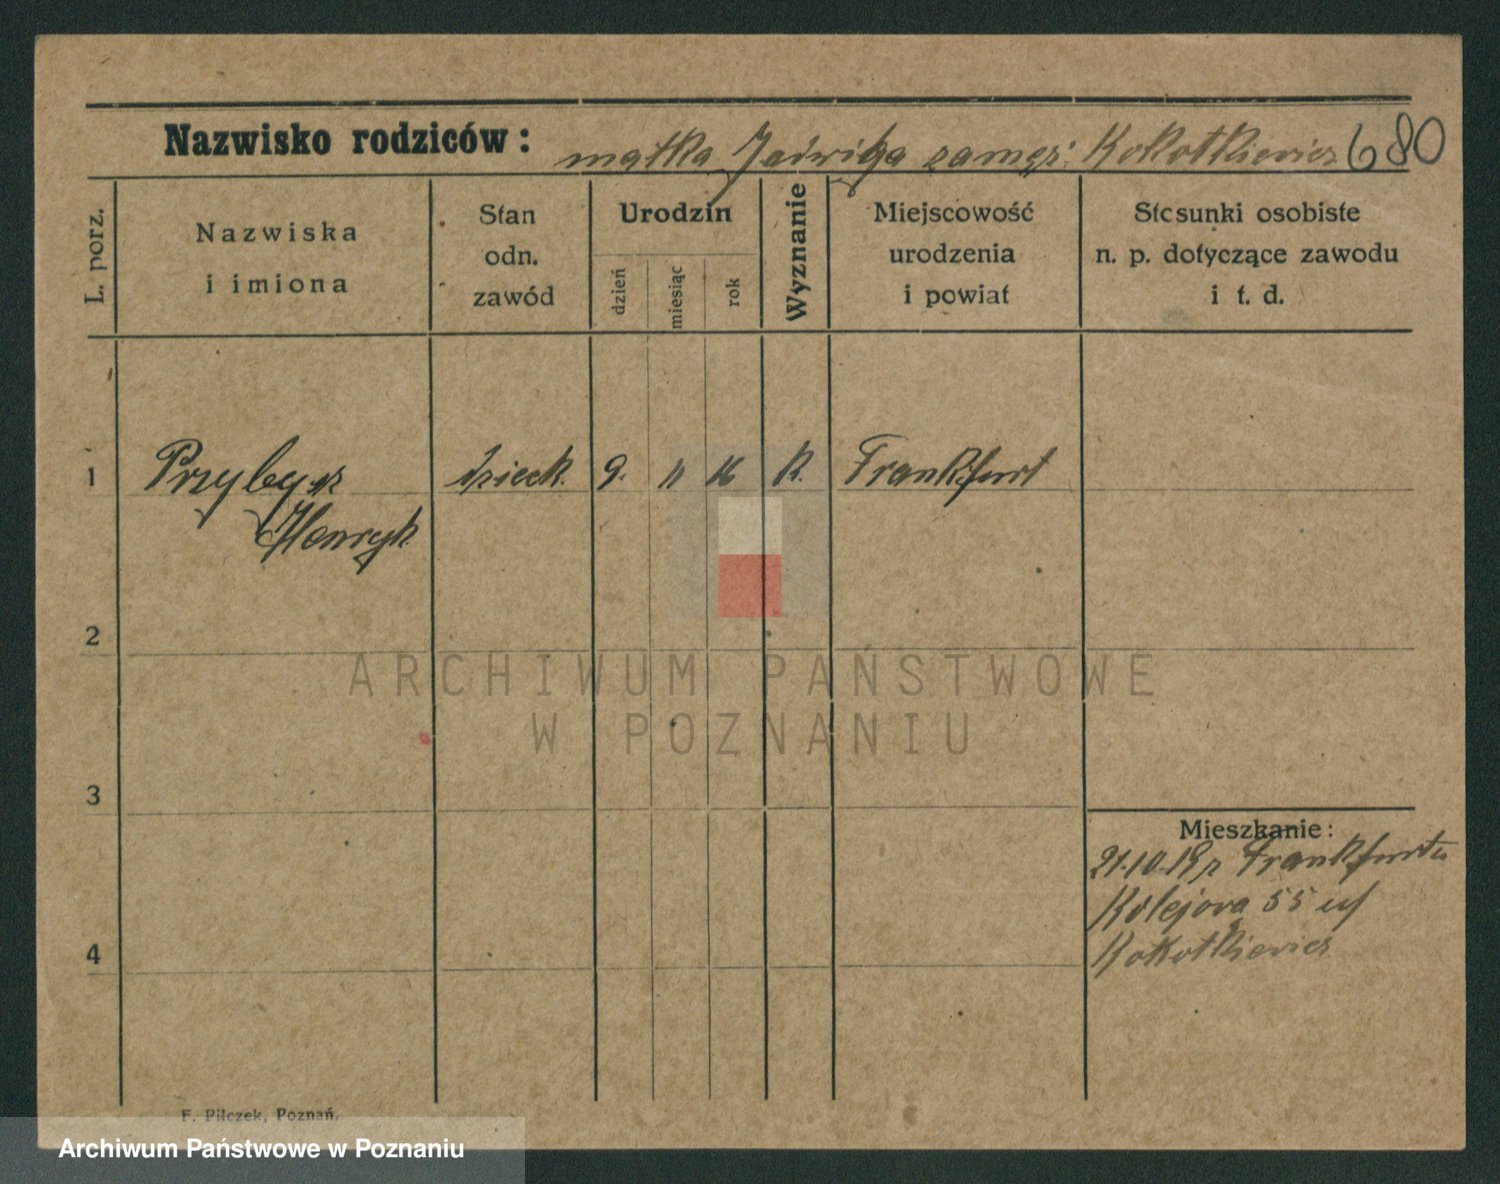 Nazwisko rodziców: matka Jadwiga zamęż. Kokotkiewicz 680
L. porz.
Nazwiska
i imiona
Stan
odn.
zawód
Urodzin
dzień
miesiąc
rok
Wyznanie
Miejscowość
urodzenia
i powiat
Stosunki osobiste
n. p. dotyczące zawodu
i t. d.
1 Przybysz dzieck. 9. 11 16 K. Frankfurt
Henryk
2
3
4
Mieszkanie:
21.10.19 z Frankfurtu
Kolejowa 55 u/
Kokotkiewicz
F. Pilczek, Poznań.
ARCHIWUM PAŃSTWOWE
W POZNANIU
Archiwum Państwowe w Poznaniu